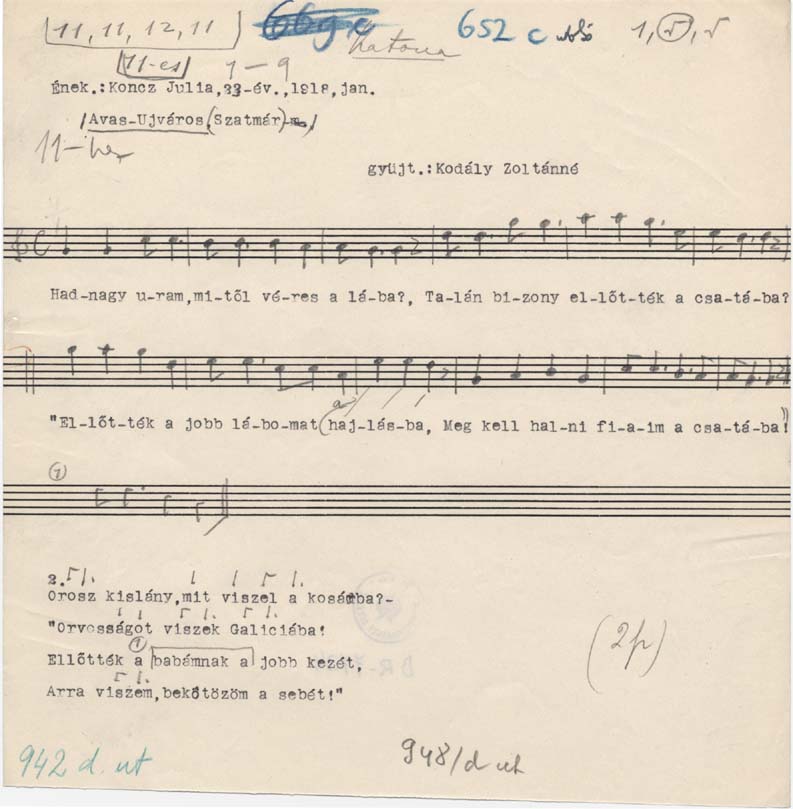 11, 11, 12, 11 66g. Katona 652 c utolsó 1, 5, 5
11-es 1-9
Ének.:Koncz Julia,33-év.,1918,jan.
/Avas-Ujváros,(Szatmár)-m./
11-
gyüjt.:Kodály Zoltánné
C
Had-nagy u-ram,mi-től vé-res a lá-ba?, Ta-lán bi-zony el-lőt-ték a csa-tá-ba?
a
"El-lőt-ték a jobb lá-bo-mat(haj-lás-ba, Meg kell hal-ni fi-a-im a csa-tá-ba)!
1
2.
Orosz kislány,mit viszel a kosárba?-
"Orvosságot viszek Galiciába!
1
Ellőtték a babámnak a jobb kezét,
Arra viszem,bekötözöm a sebét!"
(2p)
942 d. ut
948/d ut